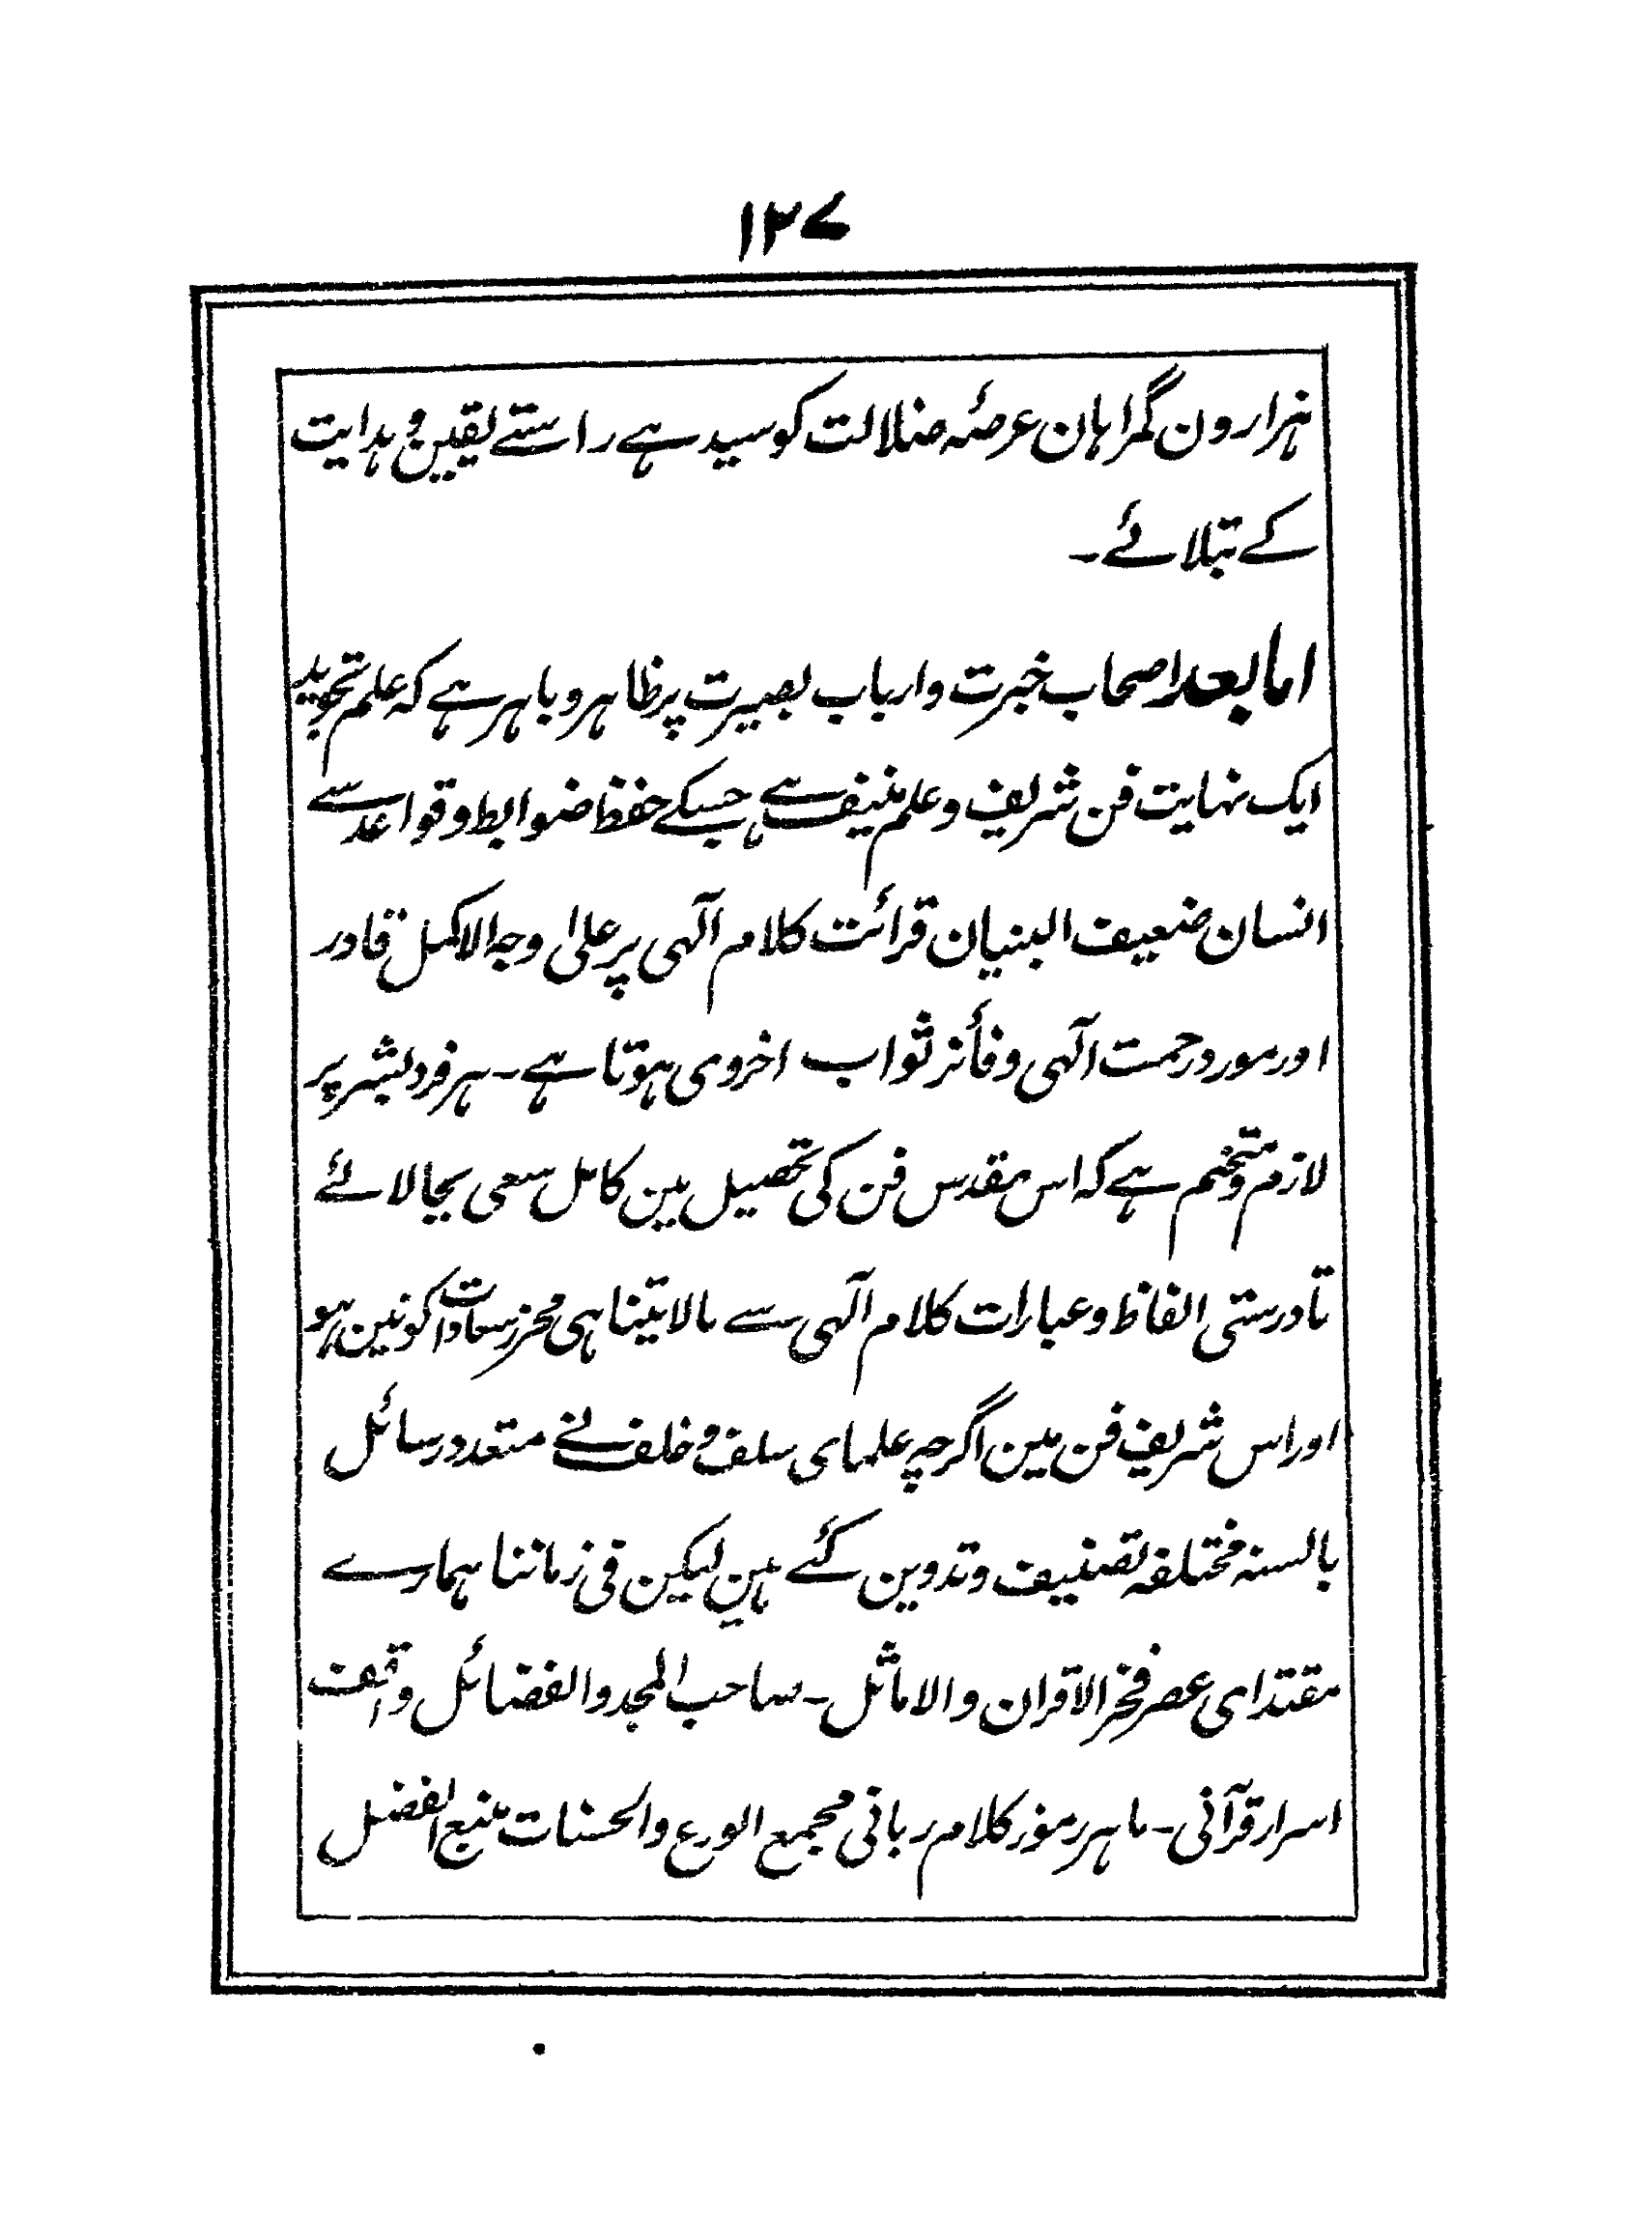 ۱۲۷
ہزارون گمراہان عرصۂ ضلالت کو سیدہے راستے یقین و ہدایت
کے بتلائے۔
اما بعد اصحاب خبرت و ارباب بصیرت پر ظاہر و باہر ہے کہ علم تجوید
ایک نہایت فن شریف و علم منیف ہے جسکے حفظ ضوابط و قواعد سے
انسان ضعیف البنیان قرائت کلام آلہی پر علیٰ وجہ الاکمل قادر
اور مورد رحمت آلہی و فائز ثواب اخروی ہوتا ہے۔ ہر فرد بشر پر
لازم و متحتم ہے کہ اس مقدس فن کی تحصیل مین کامل سعی بجا لائے
تا درستی الفاظ و عبارات کلام آلہی سے مالایتناہی محرز سعادات کونین ہو
اور اس شریف فن مین اگرچہ علمای سلف و خلف نے متعدد رسائل
بالسنہ مختلفہ تصنیف و تدوین کئے ہین لیکن فی زماننا ہمارے
مقتدای عصر فخر الاقران والاماثل۔ ساحب المجد والفضائل واقف
اسرار قرآنی۔ ماہر رموز کلام ربانی مجمع الورع والحسنات منبع الفضل